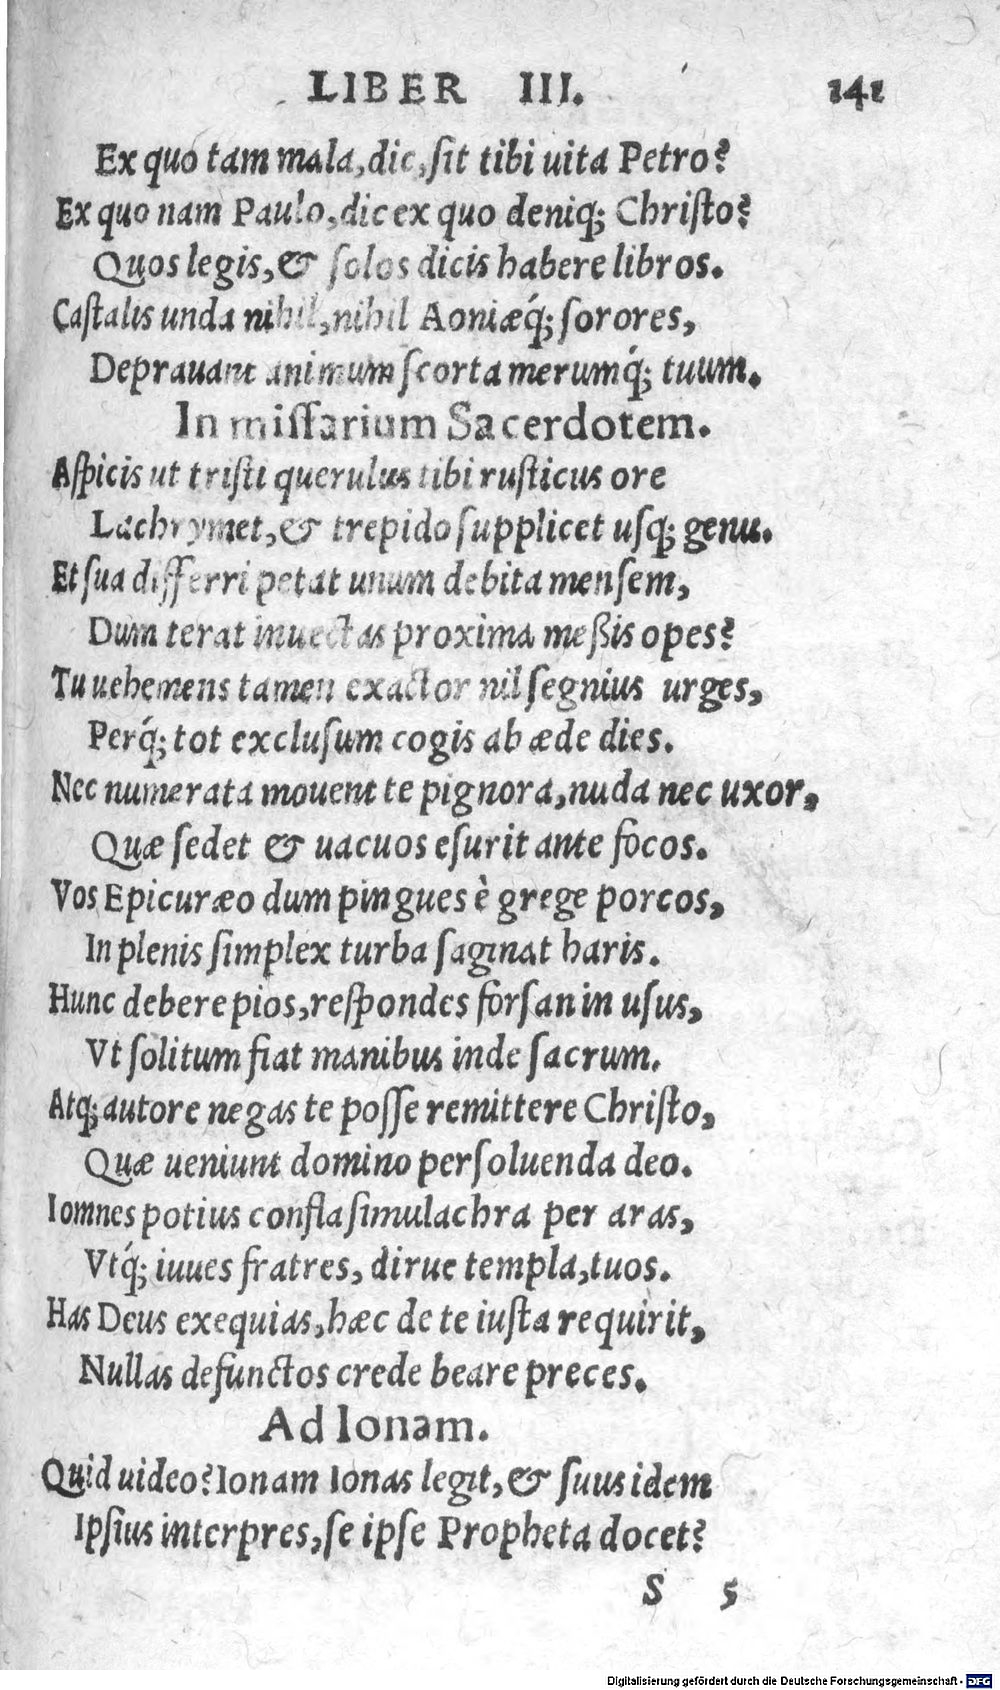 LIBER III. 141
Ex quo tam mala,dic,ſit tibi uita Petro?
Ex quo nam Paulo,dic ex quo deniq; Chriſto?
Quos legis,& ſolos dicis habere libros.
Caſtalis unda nihil,nihil Aoniæq́; ſorores,
Deprauant animum ſcorta merumq́; tuum.
In miſſarium Sacerdotem.
Aſpicis ut triſti querulus tibi ruſticus ore
Lachrymet,& trepido ſupplicet uſq; genu.
Et ſua differri petat unum debita menſem,
Dum terat inuectas proxima meßis opes?
Tu uehemens tamen exactor nil ſegnius urges,
Perq́; tot excluſum cogis ab æde dies.
Nec numerata mouent te pignora,nuda nec uxor,
Quæ ſedet & uacuos eſurit ante focos.
Vos Epicuræo dum pingues è grege porcos,
In plenis ſimplex turba ſaginat haris.
Hunc debere pios,reſpondes forſan in uſus,
Vt ſolitum fiat manibus inde ſacrum.
Atq; autore negas te poſſe remittere Chriſto,
Quæ ueniunt domino perſoluenda deo.
Iomnes potius confla ſimulachra per aras,
Vtq́; iuues fratres, dirue templa,tuos.
Has Deus exequias,hæc de te iuſta requirit,
Nullas defunctos crede beare preces.
Ad Ionam.
Quid uideo?Ionam Ionas legit,& ſuus idem
Ipſius interpres,ſe ipſe Propheta docet?
S 5
Digitalisierung gefördert durch die Deutsche Forschungsgemeinschaft - DFG